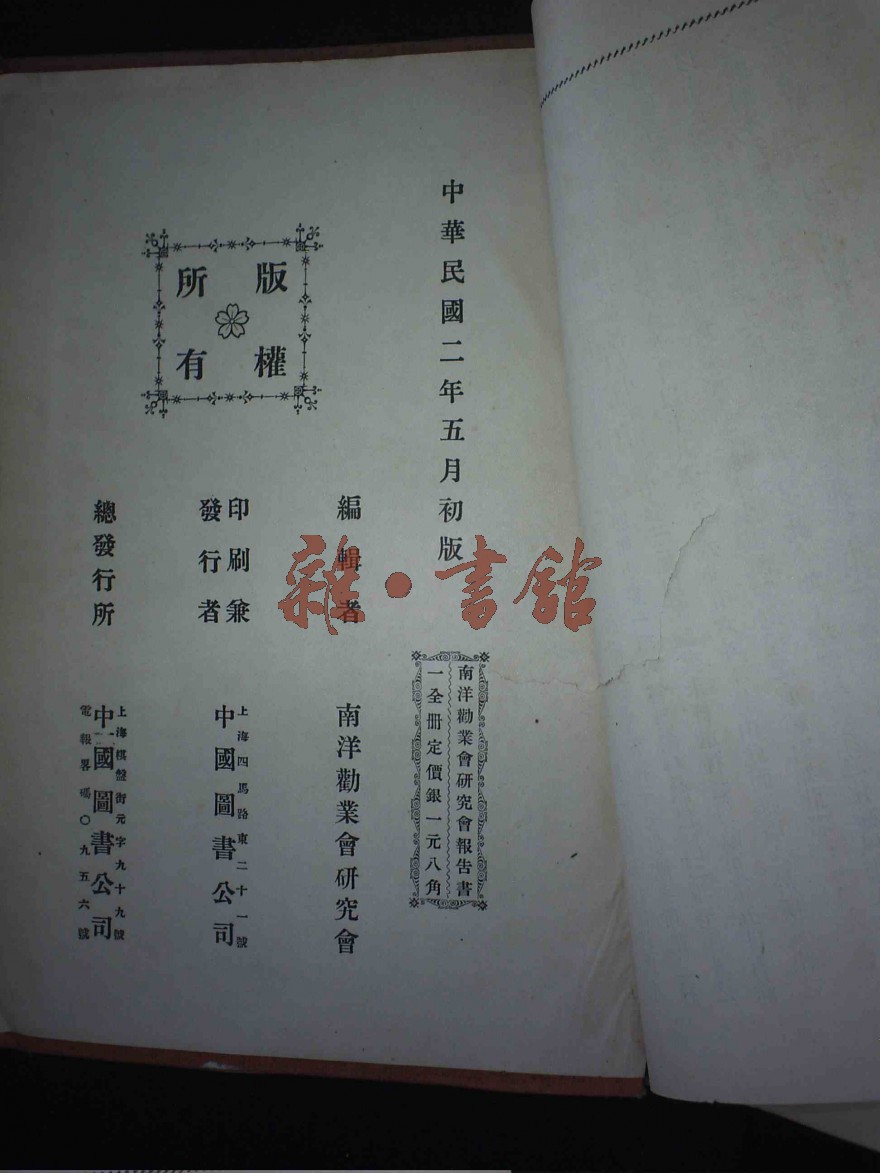 中華民國二年五月初版
南洋勸業會研究會報告書
一全册定價銀一元八角
編輯者
南洋勸業會研究會
印刷兼
發行者
上海四馬路東二十一號
中國圖書公司
版權
所有
總發行所
上海棋盤街元字九十九號
中國圖書公司
電報畧碼〇九五六號
雜·書館